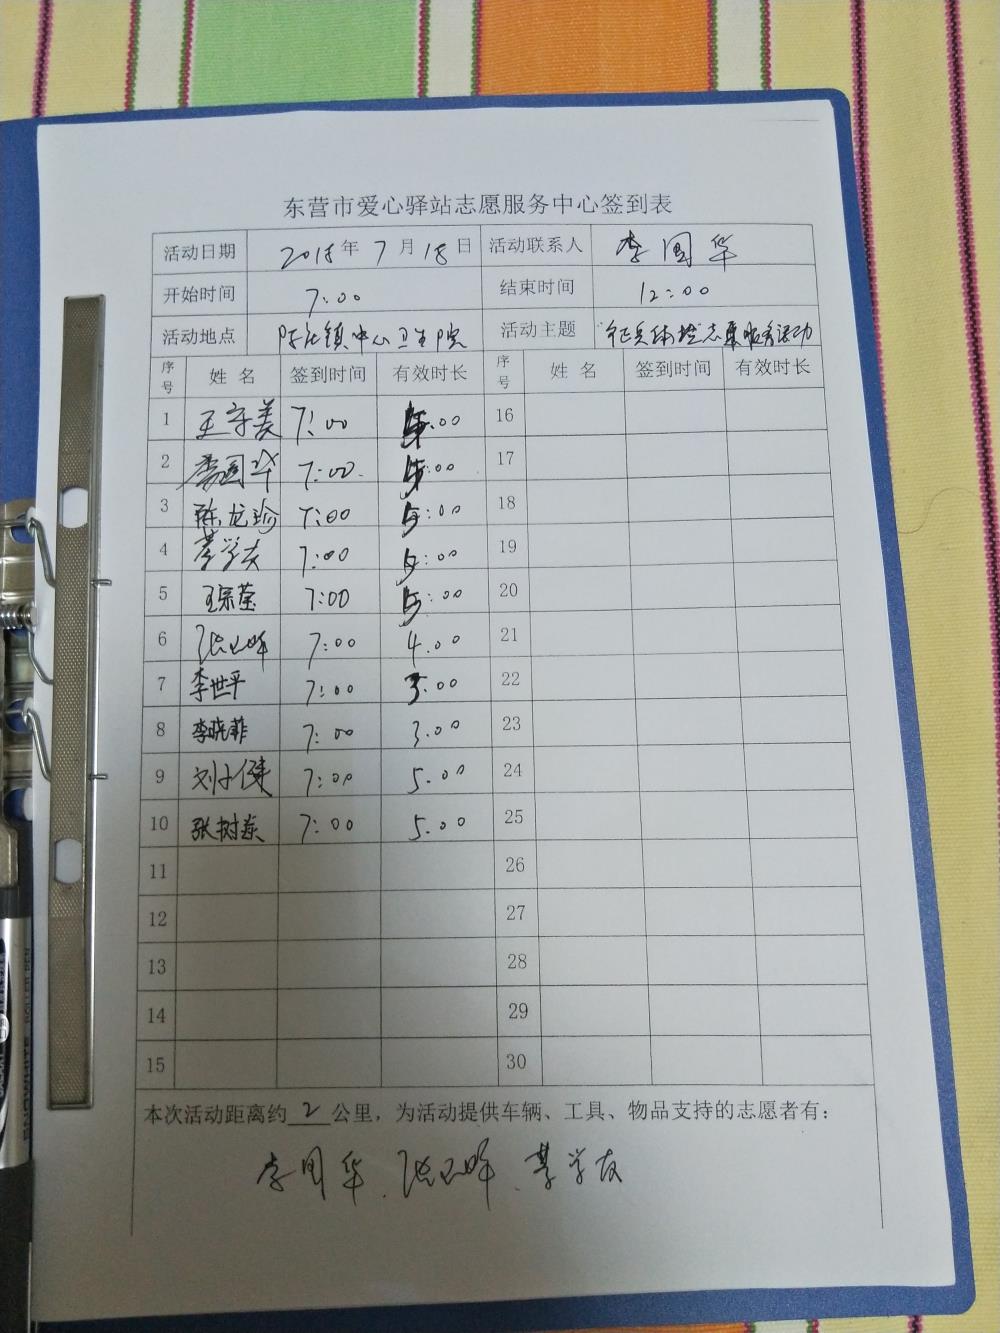 东营市爱心驿站志愿服务中心签到表
活动日期 2018年7月18日 活动联系人 李国华
开始时间 7:00 结束时间 12:00
活动地点 陈庄镇中心卫生院 活动主题 征兵体检志愿服务活动
序号 姓名 签到时间 有效时长 序号 姓名 签到时间 有效时长
1 王守美 7:00 5:00 16
2 李国华 7:00 5:00 17
3 陈龙珍 7:00 5:00 18
4 綦学友 7:00 5:00 19
5 王宗莹 7:00 5:00 20
6 7:00 4.00 21
7 李世平 7:00 3.00 22
8 李晓菲 7:00 3.00 23
9 刘小健 7:00 5.00 24
10 张树东 7:00 5.00 25
11 26
12 27
13 28
14 29
15 30
本次活动距离约2公里，为活动提供车辆、工具、物品支持的志愿者有：
李国华、綦学友